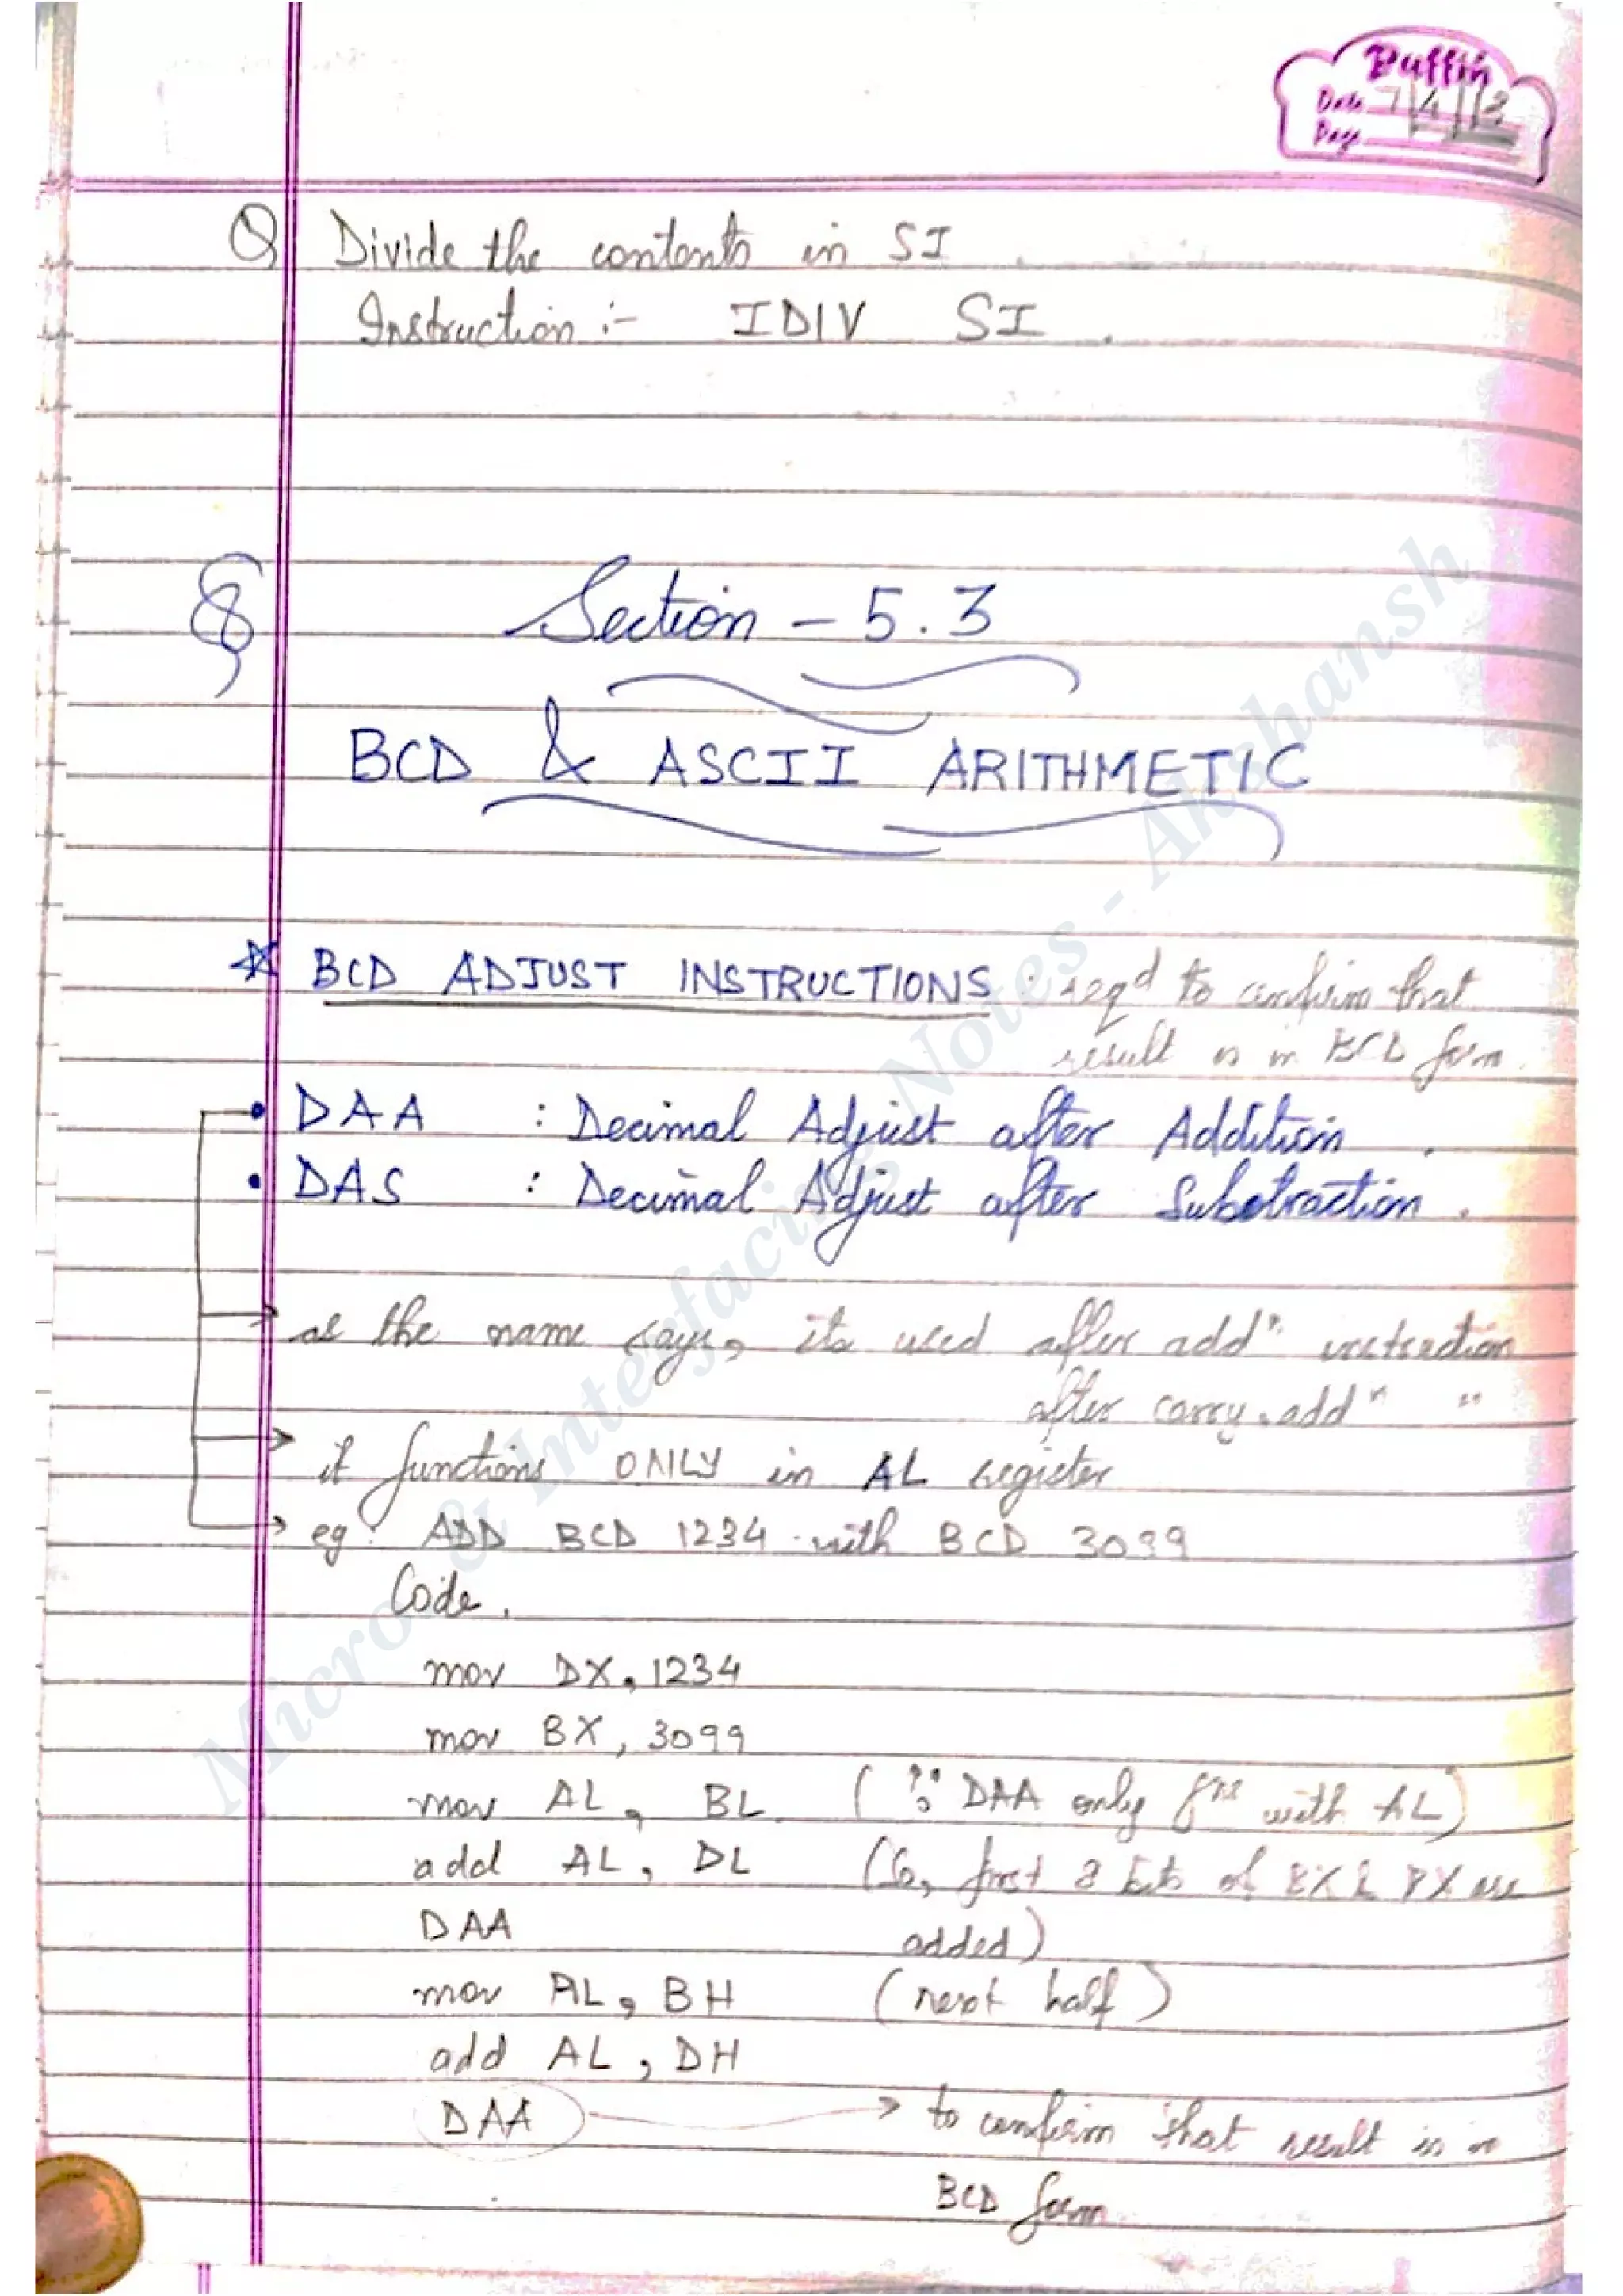 Puffin
Date 7/4/13
Page
Q Divide the contents in SI
Instruction :- IDIV SI .
§ Section - 5.3
BCD & ASCII ARITHMETIC
☆ BCD ADJUST INSTRUCTIONS : reqd to confirm that
result is in BCD form.
• DAA : Decimal Adjust after Addition .
• DAS : Decimal Adjust after Substraction .
→ as the name says, its used after addn instruction
after carry.addn "
→ it functions ONLY in AL register
→ eg : ADD BCD 1234 with BCD 3099
Code.
mov DX, 1234
mov BX, 3099
mov AL, BL (∵ DAA only fns with AL)
add AL, DL (So, first 2 bits of BX & DX are
DAA added)
mov AL, BH (next half)
add AL, DH
DAA → to confirm that result is in
BCD form
Micro & Interfacing Notes - Akshansh